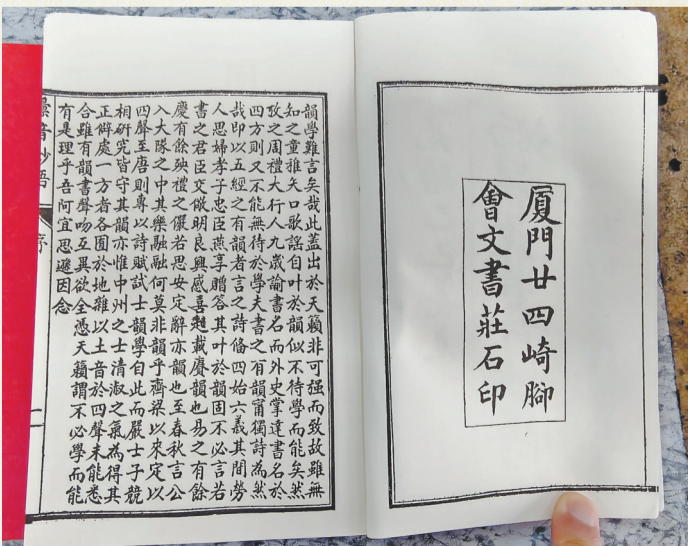 廈門廿四崎腳
會文書莊石印
韻學難言矣哉此蓋出於天籟非可强而致故雖無
知之童雅矢口歌謠自叶於韻似不待學而能矣然
攷之周禮大行人九歲諭書名而外史掌達書名於
四方則又不能無待於學夫書之有韻甯獨詩為然
哉即以五經之有韻者言之詩備四始六義其間勞
人思婦孝子忠臣燕享贈答其叶於韻固不必言若
書之君臣交儆明良興感喜起載賡韻也易之有餘
慶有餘殃禮之儼若思安定辭亦韻也至春秋言公
入大隊之中其樂融融何莫非韻乎齊梁以來定以
四聲至唐則專以詩賦試士韻學自此而嚴士子競
相研究皆守其韻亦惟中州之士清淑之氣為得其
正僻處一方者各囿於地雜以土音於四聲未能悉
合雖有韻書聲吻互異欲全憑天籟謂不必學而能
有是理乎吾阿宜思遜因念
彙音妙悟
序
二